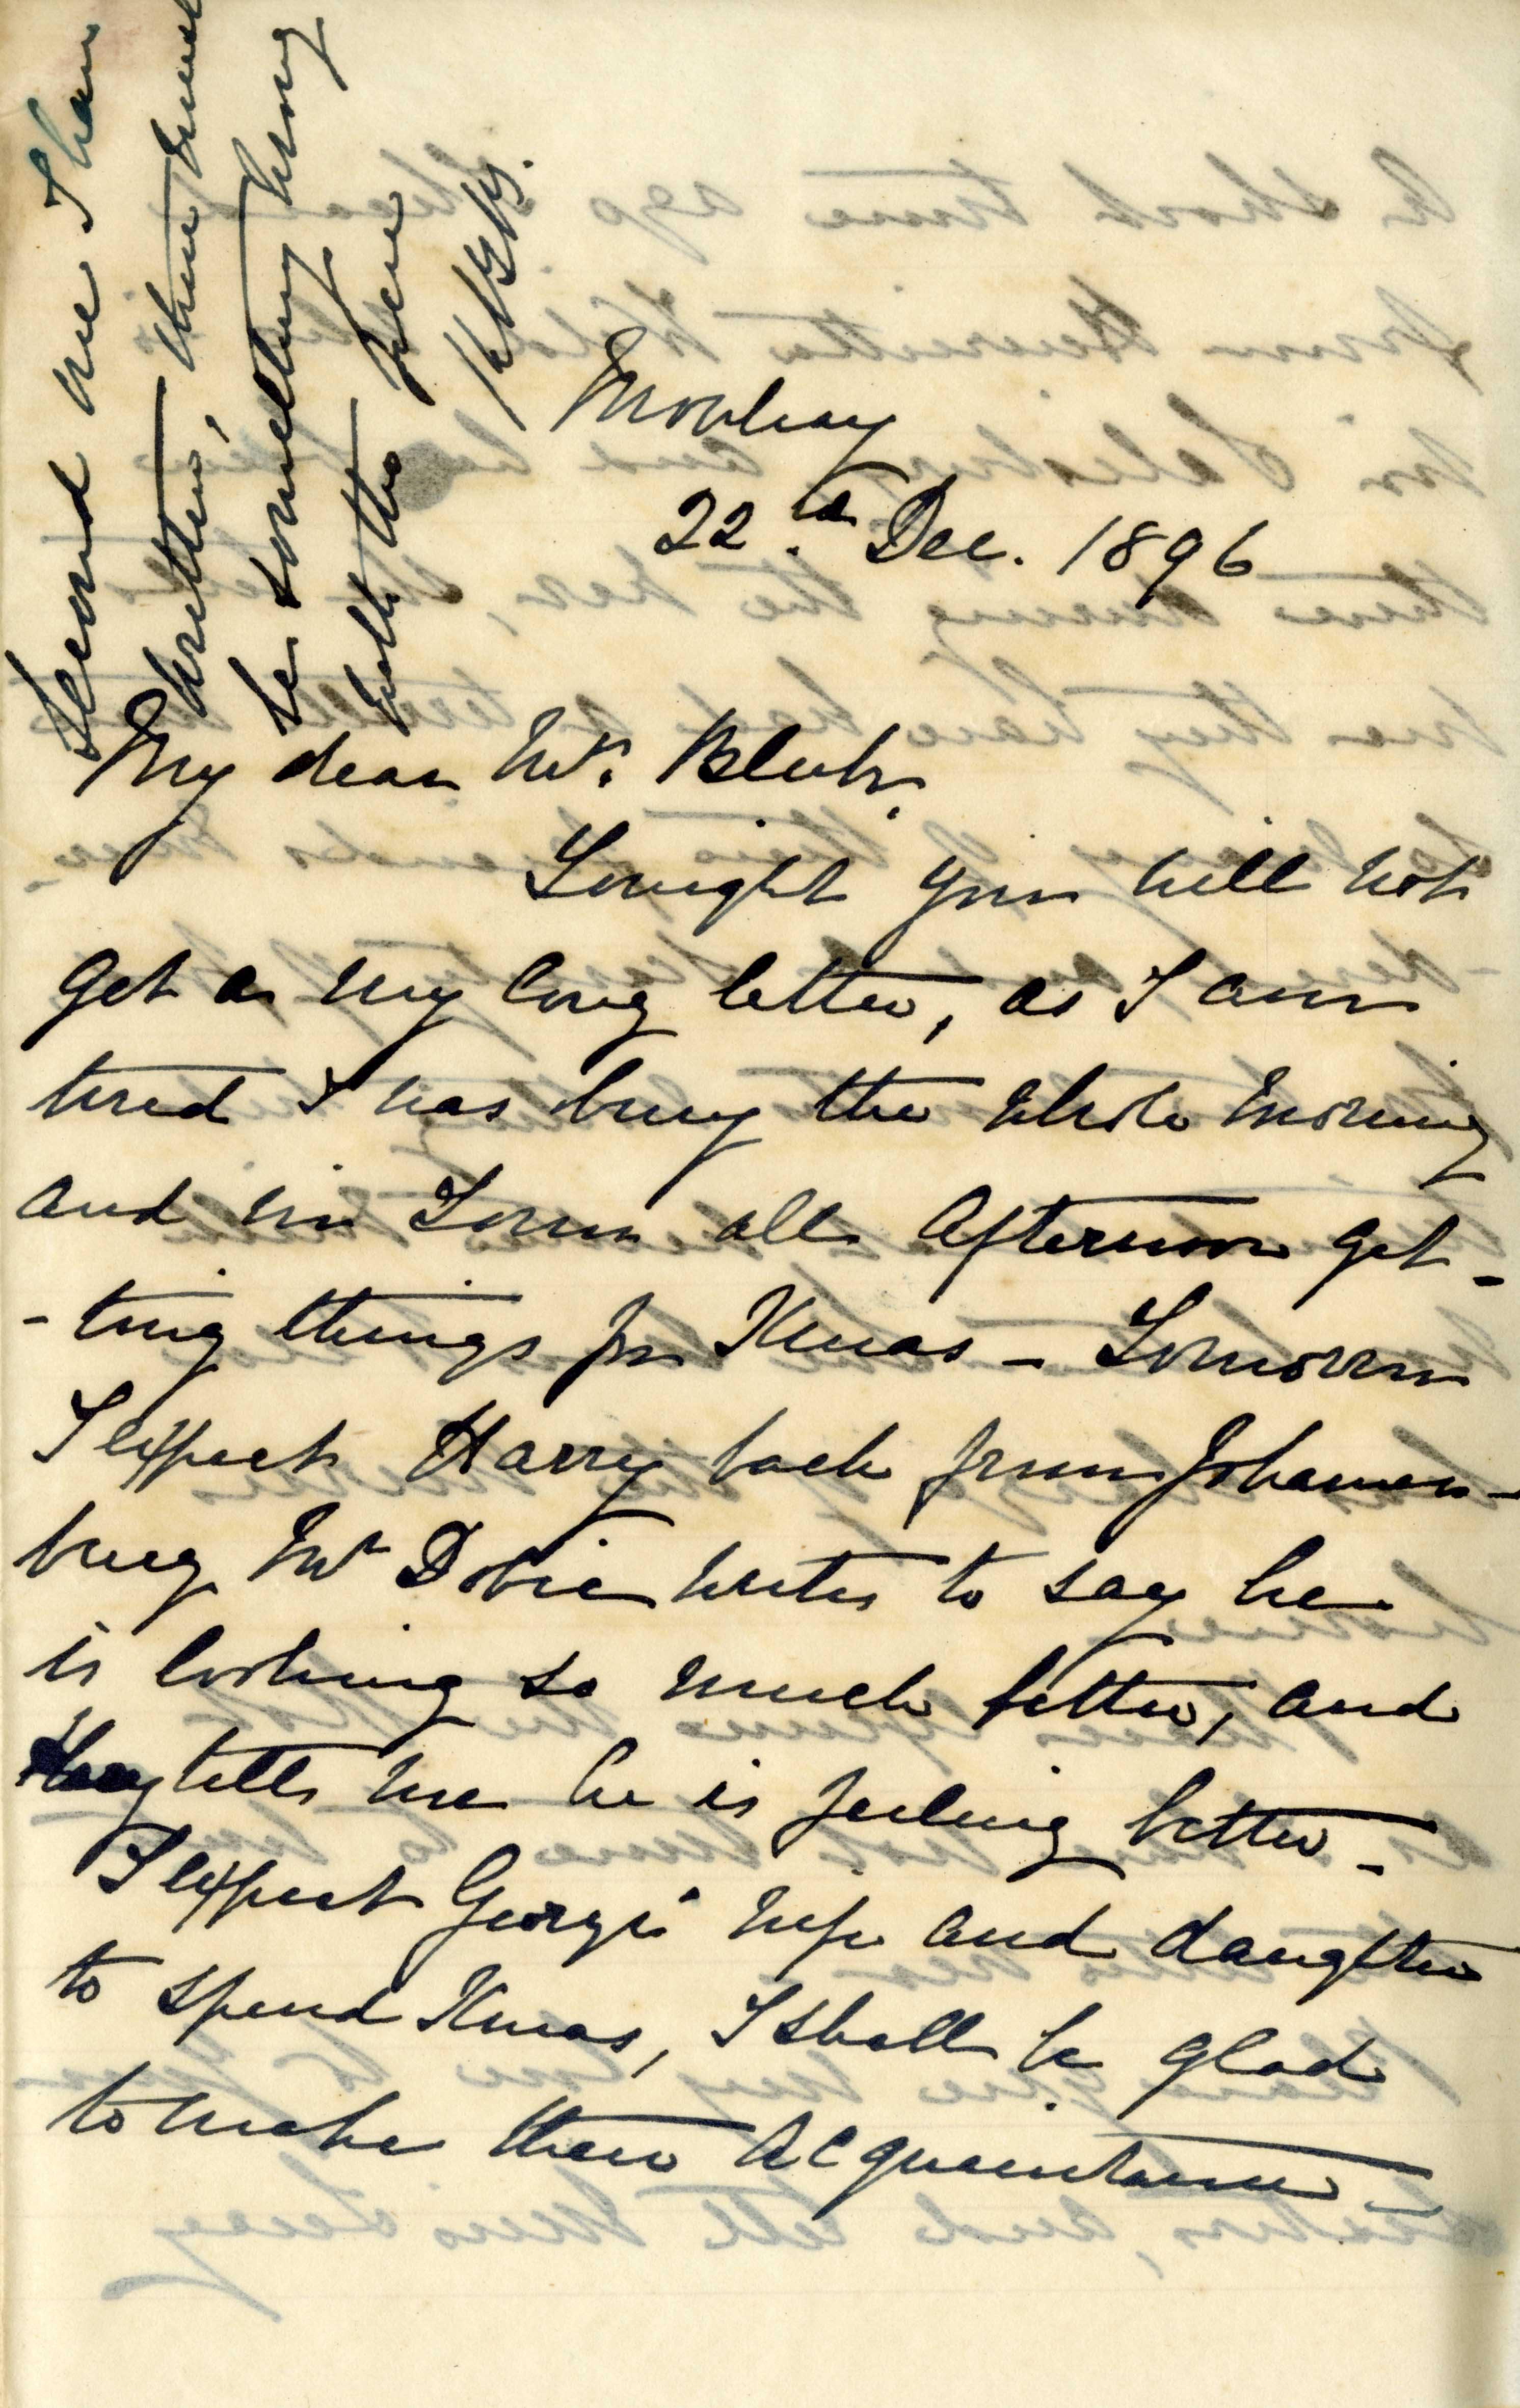 Second one I have
written, there must
be something wrong
with the pen
Mowbray
22nd Dec. 1896
My dear Mr. Bluhm.
Tonight you will not
get a very long letter, as I am
tired I was busy the whole morning
and in Town all afternoon get-
-ting things for Xmas - Tomorrow
I expect Harry back from Johannes-
burg Mr Dobie writes to say he
is looking so much better, and
Harry tells me he is feeling better -
I expect George's wife and daughter
to spend Xmas, I shall be glad
to make their acquaintance -